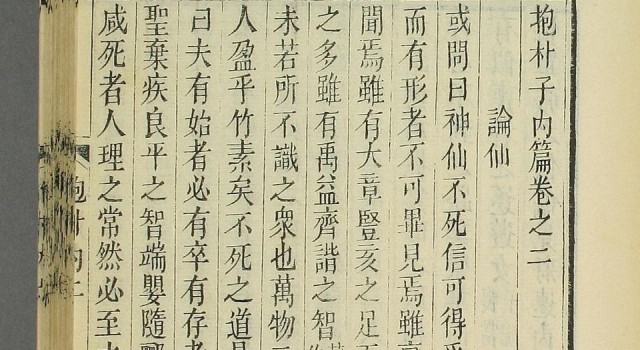 抱朴子内篇卷之二
論仙
或問曰神仙不死信可得
而有形者不可畢見焉雖
聞焉雖有大章豎亥之足
之多雖有禹益齊諧之智
未若所不識之衆也萬物
人盈乎竹素矣不死之道
曰夫有始者必有卒有存
聖棄疾良平之智端嬰隨酈
咸死者人理之常然必至
抱朴内二